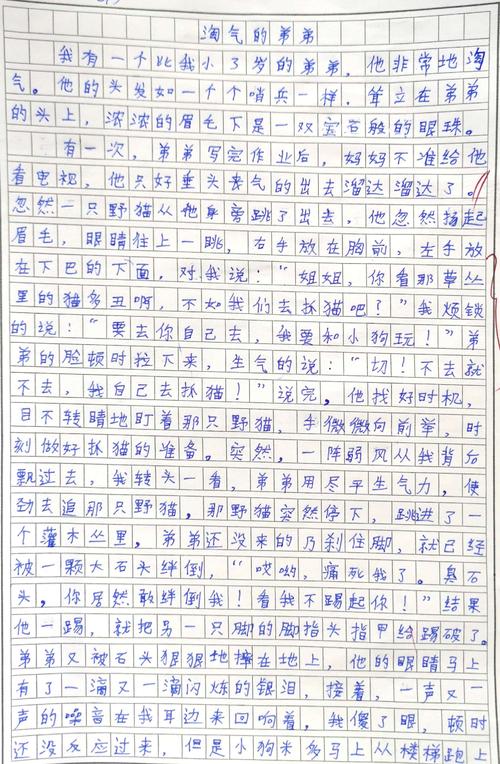 淘气的弟弟
我有一个比我小了岁的弟弟，他非常地淘
气。他的头发如一个个哨兵一样，耸立在弟弟
的头上，浓浓的眉毛下是一双宝石般的眼珠。
有一次，弟弟写完作业后，妈妈不准给他
看电视，他只好垂头丧气的出去溜达溜达了。
忽然一只野猫从他身旁跳了出去，他忽然扬起
眉毛，眼睛往上一眺，右手放在胸前，左手放
在下巴的下面，对我说：“姐姐，你看那草丛
里的猫多丑啊，不如我们去抓猫吧？”我烦锁
的说：“要去你自己去，我要和小狗玩！”弟
弟的脸顿时拉下来，生气的说：“切！不去就
不去，我自己去抓猫！”说完，他找好时机，
目不转睛地盯着那只野猫，手微微向前举，时
刻做好抓猫的准备。突然，一阵弱风从我背后
飘过去，我转头一看，弟弟用尽平生气力，使
劲去追那只野猫，那野猫突然停下，跳进了一
个灌木丛里，弟弟还没来的乃刹住脚，就已经
被一颗大石头绊倒，“哎哟，痛死我了。臭石
头，你居然敢绊倒我！看我不踢起你！”结果
他一踢，就把另一只脚的脚指头指甲给踢破了。
弟弟又被石头狠狠地撞在地上，他的眼睛马上
有了一滴又一滴闪烁的银泪，接着，一声又一
声的噪音在我耳边来回响着，我傻了眼，顿时
还没反应过来，但是小狗米多马上从楼梯跑上